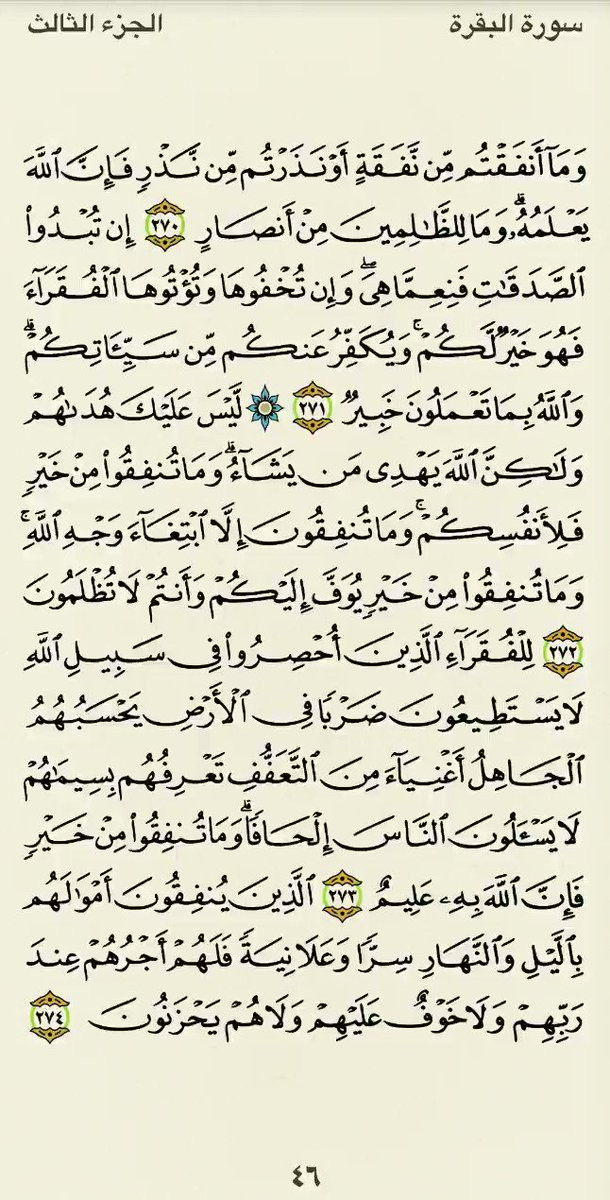 سورة البقرة الجزء الثالث
وَمَآ أَنفَقۡتُم مِّن نَّفَقَةٍ أَوۡ نَذَرۡتُم مِّن نَّذۡرٖ فَإِنَّ ٱللَّهَ
يَعۡلَمُهُۥۗ وَمَا لِلظَّٰلِمِينَ مِنۡ أَنصَارٍ ٢٧٠ إِن تُبۡدُواْ
ٱلصَّدَقَٰتِ فَنِعِمَّا هِيَۖ وَإِن تُخۡفُوهَا وَتُؤۡتُوهَا ٱلۡفُقَرَآءَ
فَهُوَ خَيۡرٞ لَّكُمۡۚ وَيُكَفِّرُ عَنكُم مِّن سَيِّـَٔاتِكُمۡۗ
وَٱللَّهُ بِمَا تَعۡمَلُونَ خَبِيرٞ ٢٧١ ۞ لَّيۡسَ عَلَيۡكَ هُدَىٰهُمۡ
وَلَٰكِنَّ ٱللَّهَ يَهۡدِي مَن يَشَآءُۗ وَمَا تُنفِقُواْ مِنۡ خَيۡرٖ
فَلِأَنفُسِكُمۡۚ وَمَا تُنفِقُونَ إِلَّا ٱبۡتِغَآءَ وَجۡهِ ٱللَّهِۚ
وَمَا تُنفِقُواْ مِنۡ خَيۡرٖ يُوَفَّ إِلَيۡكُمۡ وَأَنتُمۡ لَا تُظۡلَمُونَ
٢٧٢ لِلۡفُقَرَآءِ ٱلَّذِينَ أُحۡصِرُواْ فِي سَبِيلِ ٱللَّهِ
لَا يَسۡتَطِيعُونَ ضَرۡبٗا فِي ٱلۡأَرۡضِ يَحۡسَبُهُمُ
ٱلۡجَاهِلُ أَغۡنِيَآءَ مِنَ ٱلتَّعَفُّفِ تَعۡرِفُهُم بِسِيمَٰهُمۡ
لَا يَسۡـَٔلُونَ ٱلنَّاسَ إِلۡحَافٗاۗ وَمَا تُنفِقُواْ مِنۡ خَيۡرٖ
فَإِنَّ ٱللَّهَ بِهِۦ عَلِيمٌ ٢٧٣ ٱلَّذِينَ يُنفِقُونَ أَمۡوَٰلَهُم
بِٱلَّيۡلِ وَٱلنَّهَارِ سِرّٗا وَعَلَانِيَةٗ فَلَهُمۡ أَجۡرُهُمۡ عِندَ
رَبِّهِمۡ وَلَا خَوۡفٌ عَلَيۡهِمۡ وَلَا هُمۡ يَحۡزَنُونَ ٢٧٤
٤٦